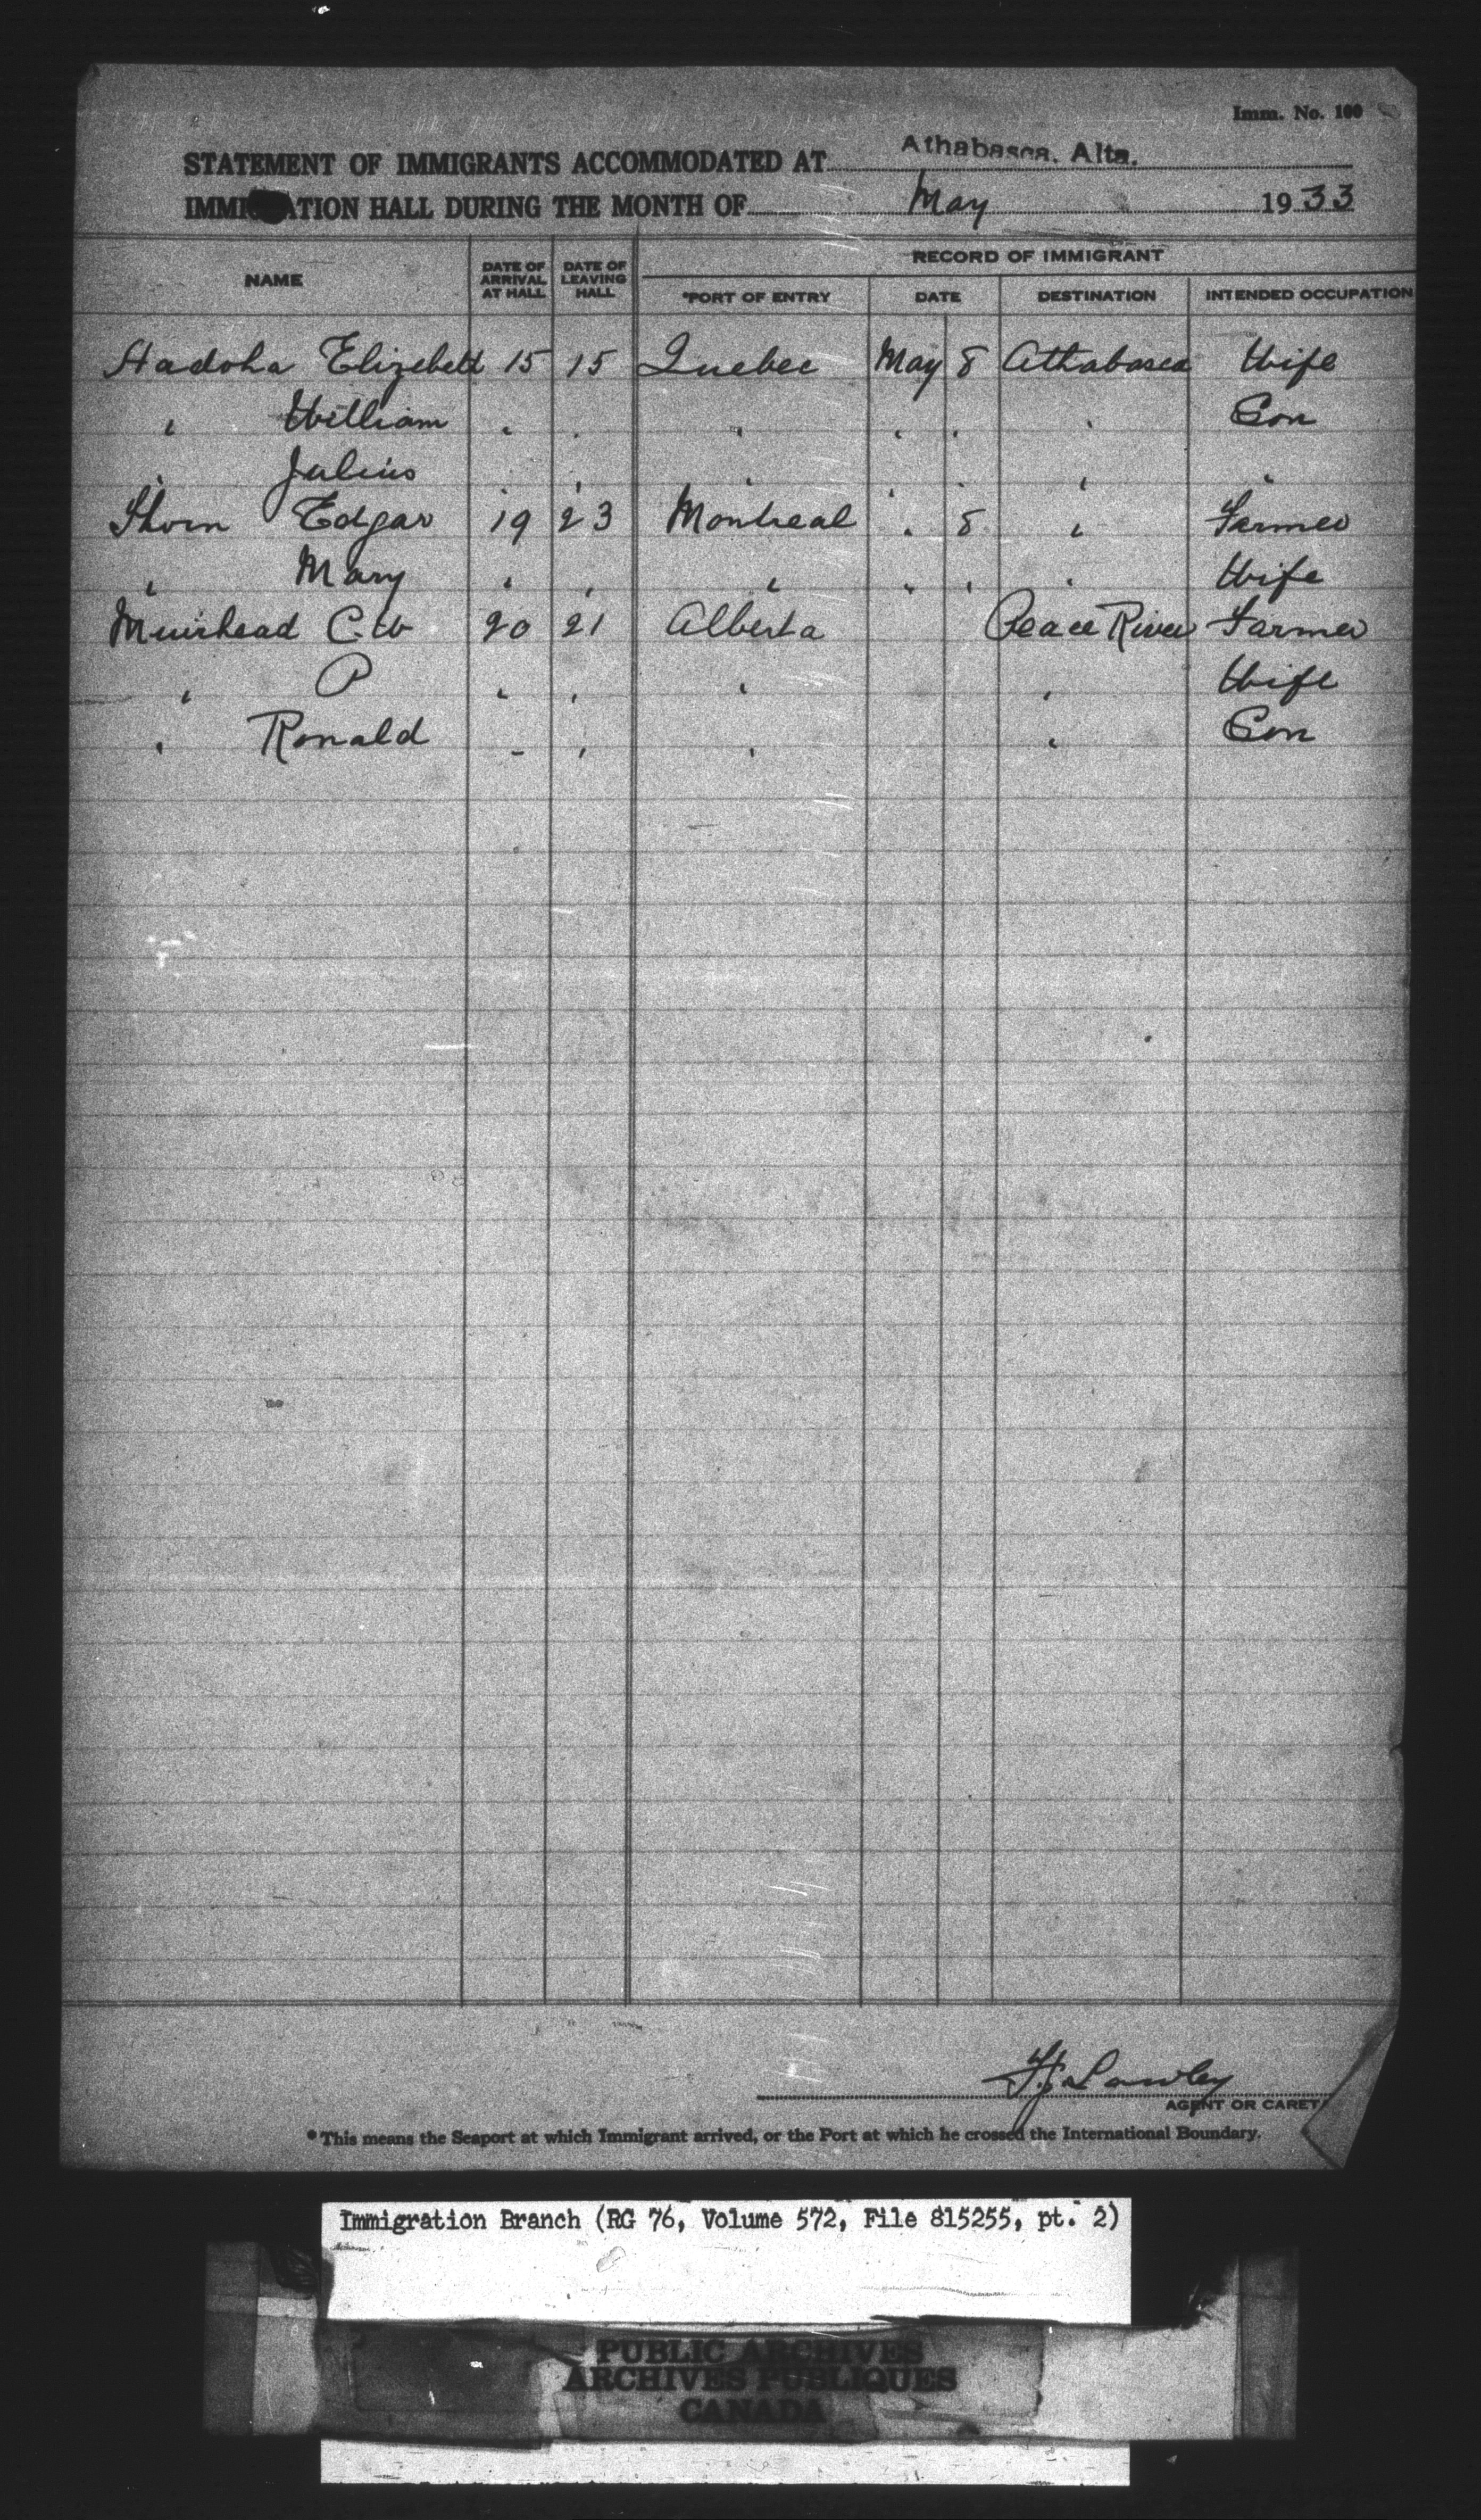 Imm. No. 100
STATEMENT OF IMMIGRANTS ACCOMMODATED AT Athabasca, Alta.
IMMI ATION HALL DURING THE MONTH OF May 1933
NAME DATE OF ARRIVAL AT HALL DATE OF LEAVING HALL RECORD OF IMMIGRANT
*PORT OF ENTRY DATE DESTINATION INTENDED OCCUPATION
Hadoha Elizebett 15 15 Quebec May 8 Athabasca Wife
" William " " " " " " Son
" Julius " " " " " " "
Thorn Edgar 19 23 Montreal " 8 " Farmer
" Mary " " " " " " Wife
Muirhead C.W 20 21 Alberta Peace River Farmer
" P " " " " Wife
" Ronald " " " " Son
F.J. Lawley
AGENT OR CARET
*This means the Seaport at which Immigrant arrived, or the Port at which he crossed the International Boundary.
Immigration Branch (RG 76, Volume 572, File 815255, pt. 2)
PUBLIC ARCHIVES
ARCHIVES PUBLIQUES
CANADA